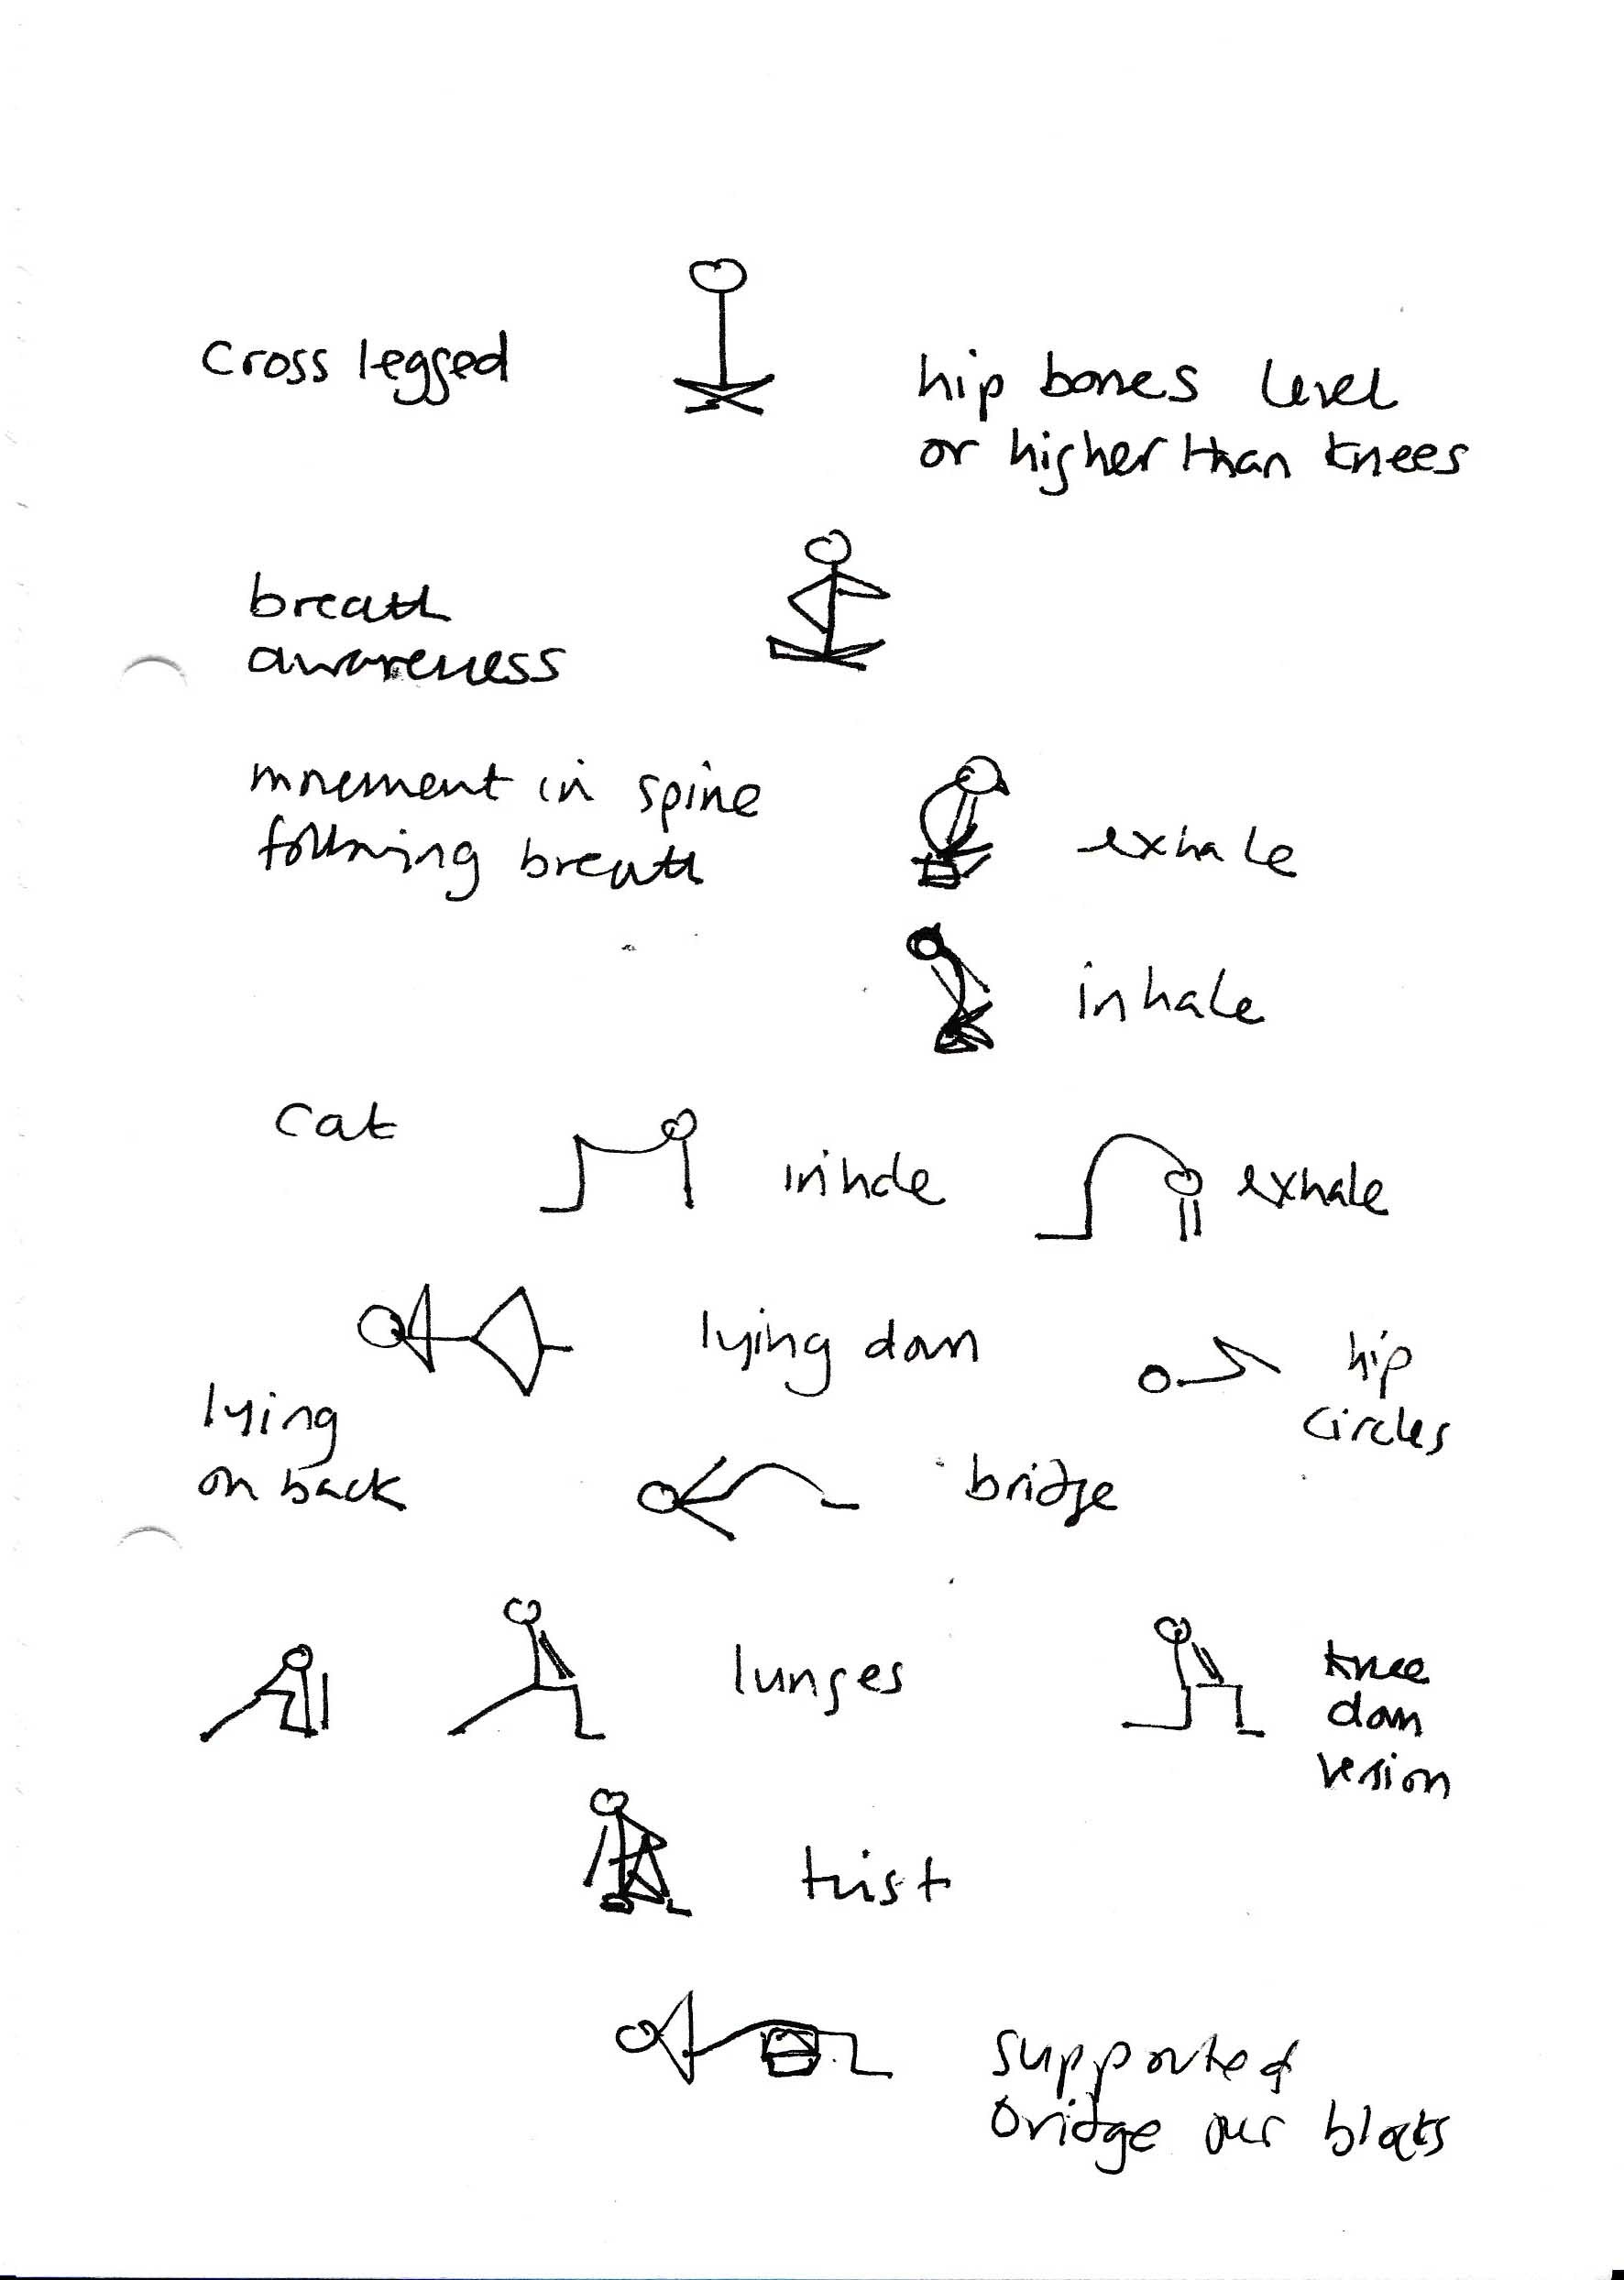 Cross legged
hip bones level
or higher than knees
breath
awareness
movement in spine
following breath
exhale
inhale
cat
inhale
exhale
lying down
hip
circles
lying
on back
bridge
lunges
knee
down
version
twist
supported
bridge over blocks